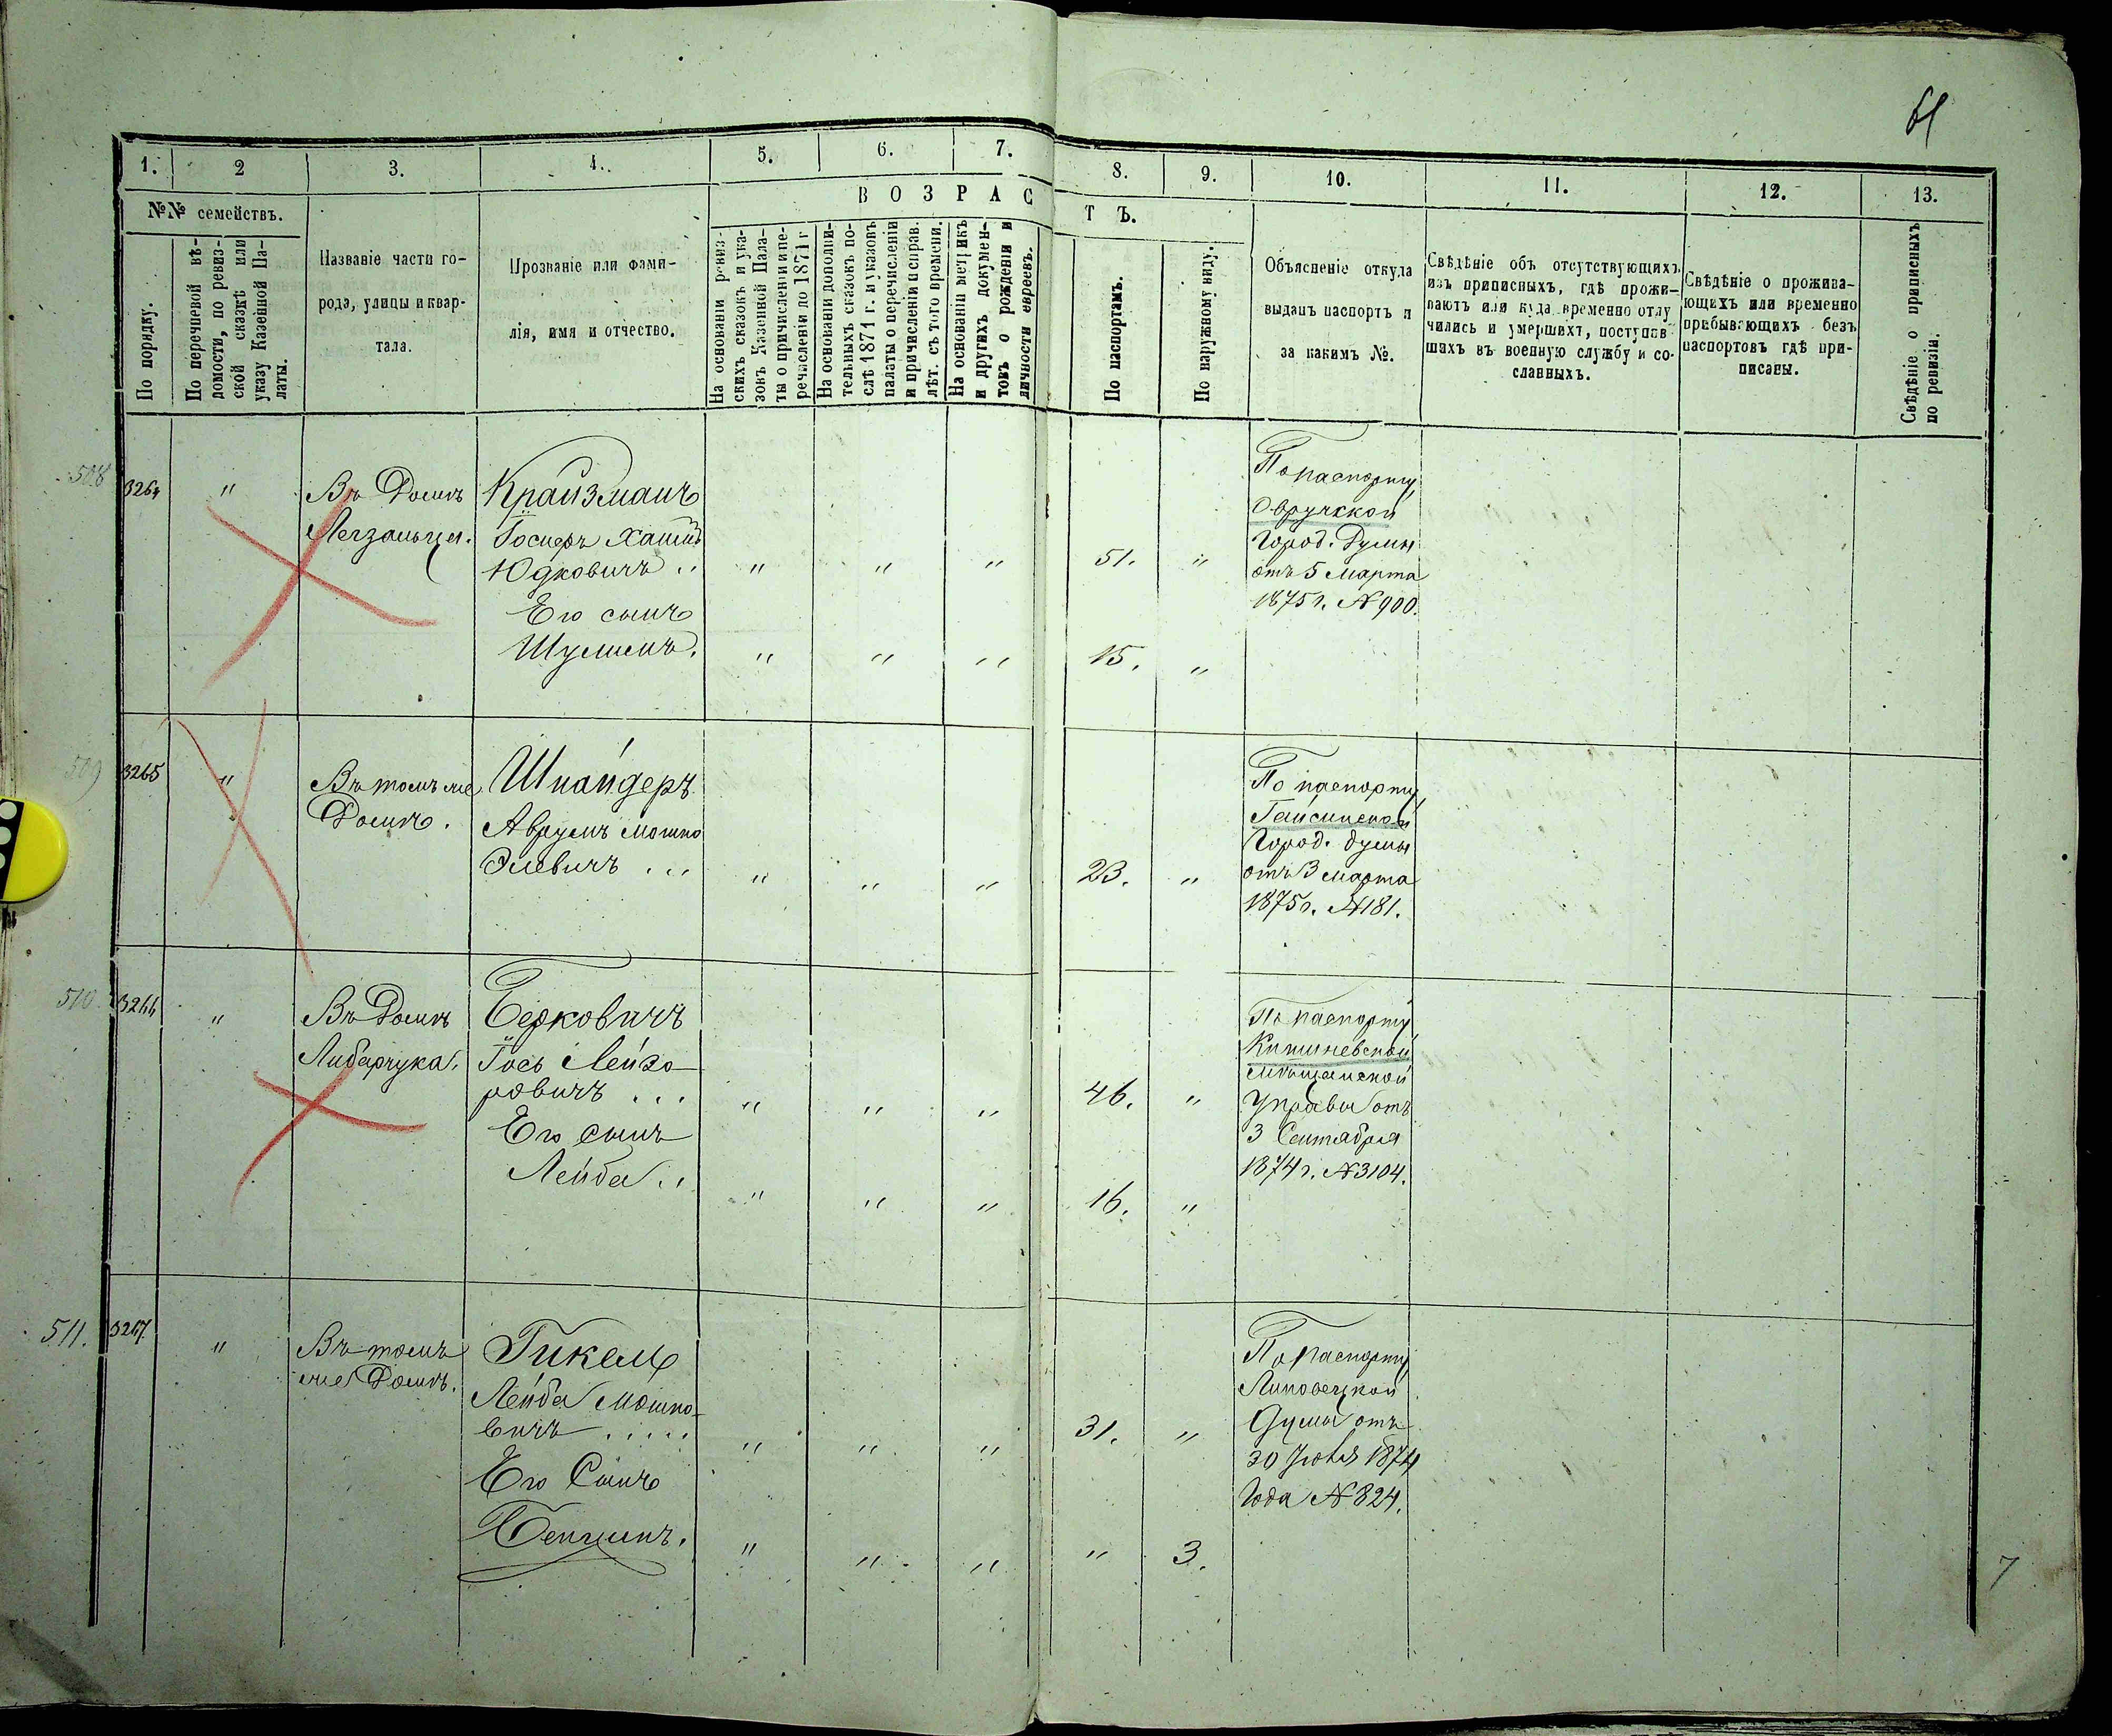 61
1. 2 3. 4. 5. 6. 7. 8. 9. 10. 11. 12. 13.
№№ семействъ.
В О З Р А С Т Ъ.
По порядку.
По перечневой вѣ-
домости, по ревиз-
ской сказкѣ или
указу Казенной Па-
латы.
Названіе части го-
рода, улицы и квар-
тала.
Прозваніе или фами-
лія, имя и отчество.
На основаніи ревиз-
скихъ сказокъ и ука-
зовъ Казенной Пала-
ты о причисленіи и пе-
речисленіи до 1871 г
На основаніи дополни-
тельныхъ сказокъ по-
слѣ 1871 г. и указовъ
палаты о перечисленіи
и причисленіи и справ.
лѣт. съ того времени.
На основаніи метрикъ
и другихъ докумен-
товъ о рожденіи и
личности евреевъ.
По паспортамъ.
По наружному виду.
Объясненіе откуда
выданъ паспортъ и
за какимъ №.
Свѣдѣніе объ отсутствующихъ
изъ приписныхъ, гдѣ прожи-
ваютъ или куда временно отлу
чились и умершихъ, поступив
шихъ въ военную службу и со-
сланныхъ.
Свѣдѣніе о прожива-
ющихъ или временно
прибывающихъ безъ
паспортовъ гдѣ при-
писаны.
Свѣдѣніе о приписныхъ
по ревизіи.
508 3264 " Въ Домѣ
Крайзманъ
Хаимъ
Юдковичъ .. " " " 51. "
Его сынъ
Шулимъ. " " " 15. "
По паспорту
Овручской
Город. Думы
отъ 5 Марта
1875 г. № 900.
509 3265 " Въ томъ же
Домѣ.
Шнайдеръ
Аврумъ Мошко
Элевичъ ... " " " 23. "
По паспорту
Гайсинской
Город. Думы
отъ 3 Марта
1875 г. № 181.
510 3266 " Въ Домѣ
Либарчука.
Берковичъ
Іось Лейзо-
ровичъ ... " " " 46. "
Его сынъ
Лейба .. " " " 16. "
По паспорту
Кишиневской
мѣщанской
Управы отъ
3 Сентября
1874 г. № 3104.
511. 3267 " Въ томъ
же Домѣ.
Гикель
Лейба Мошко-
вичъ ..... " " " 31. "
Его Сынъ
Бенцинъ. " " " " 3.
По паспорту
Липовецкой
Думы отъ
30 1874
Года № 824.
7